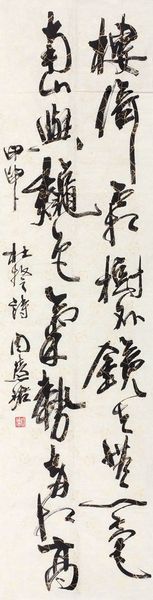 楼倚霜树外镜天无一毫
南山与秋色气势两相高
甲申 杜牧诗 周慧珺